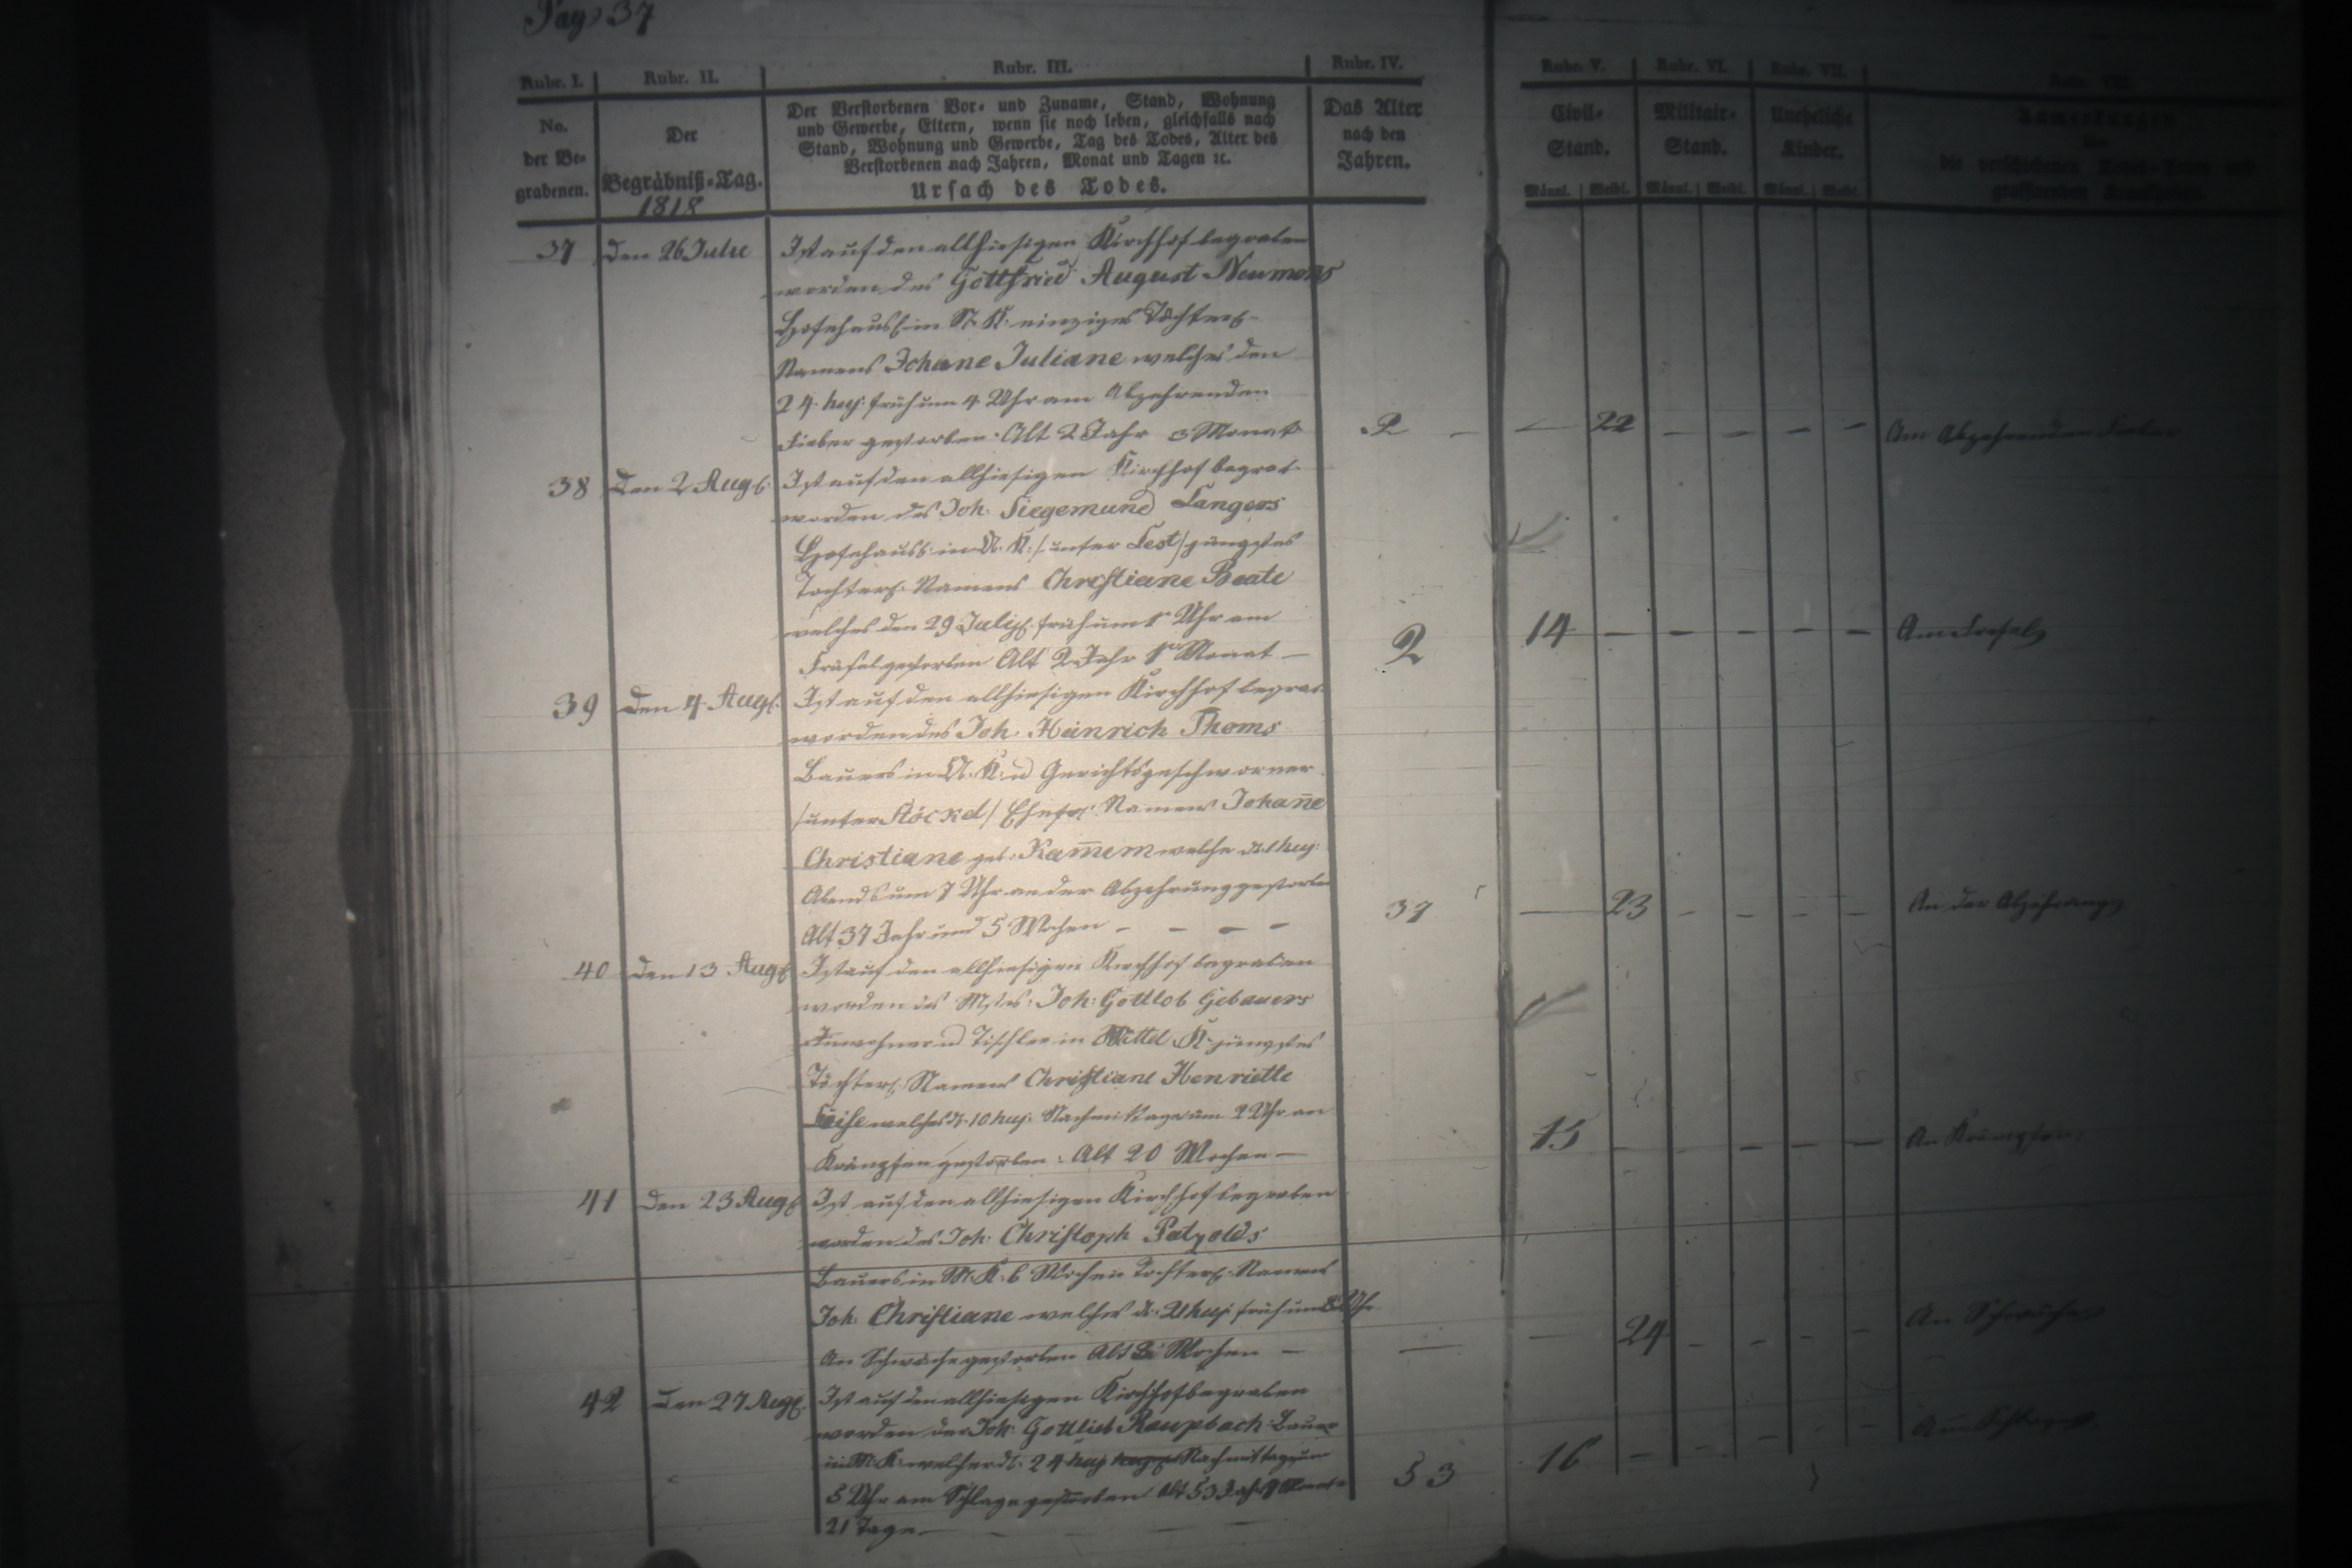 Pag 37
Rubr. I. Rubr. II. Rubr. III. Rubr. IV. Rubr. V. Rubr. VI. Rubr. VII.
No. der Begrabenen.
Der Begräbniß-Tag.
1818
Der Verstorbenen Vor- und Zuname, Stand, Wohnung
und Gewerbe, Eltern, wenn sie noch leben, gleichfalls nach
Stand, Wohnung und Gewerbe, Tag des Todes, Alter des
Verstorbenen nach Jahren, Monat und Tagen ꝛc.
Ursach des Todes.
Das Alter
nach den
Jahren.
Civil-
Stand.
Militair-
Stand.
Uneheliche
Kinder.
Männl. Weibl. Männl. Weibl. Männl. Weibl.
37 Den 26 Julie Ist auf den allhiesigen Kirchhof begraben
worden des Gottfried August Neumans
in N. K. einziges Töchterl.
Namens Johane Juliane welches den
24. huj. früh um 4 Uhr am Abzehrenden
Fieber gestorben. Alt 2 Jahr 3 Monat
2 — — 22 — — — — Am Abzehrenden Fieber
38 Den 2 Aug. Ist auf den allhiesigen Kirchhof begrab.
worden des Joh. Siegemund Langers
in N. K. /unter Lest/ jüngstes
Töchterl. Namens Christiane Beate
welches den 29 July früh um Uhr am
Friesel gestorben Alt 2 Jahr Monat —
2 14 — — — — — Am Friesel
39 Den 4 Aug. Ist auf den allhiesigen Kirchhof begrab.
worden des Joh. Heinrich Thoms
Bauers in N. K. u Gerichtsgeschworner
/unter Röckel/ Namens Johan̄e
Christiane geb. welche d. 1 huj.
Abends um 7 Uhr an der Abzehrung gestorben
Alt 37 Jahr und 5 Wochen — — — —
37 — 23 — — — — An der Abzehrung
40 Den 13 Aug. Ist auf den allhiesigen Kirchhof begraben
worden des Mstr. Joh. Gottlob Gebauers
Inwohner u Tischler in Mittel K. jüngstes
Töchterl. Namens Christiane Henriette
welches d. 10 huj. Nachmittags um 2 Uhr an
Krämpfen gestorben. Alt 20 Wochen —
15 — — — — — An Krämpfen.
41 Den 23 Aug. Ist auf den allhiesigen Kirchhof begraben
worden des Joh. Christoph Patzolds
Bauers in M. K. 6 Wochen Töchterl. Namens
Joh. Christiane welches d. 21 huj. früh um 8 Uhr
An Schwäche gestorben Alt Wochen —
— — 24 — — — — An Schwäche
42 Den 27 Aug. Ist auf den allhiesigen Kirchhof begraben
worden der Joh. Gottlieb Raupbach Bauer
in M. K. welcher d. 24 huj. Nachmittags um
5 Uhr am Schlage gestorben Alt 53 Jahr Monat
21 Tage —
53 16 — — — — — Am Schlage